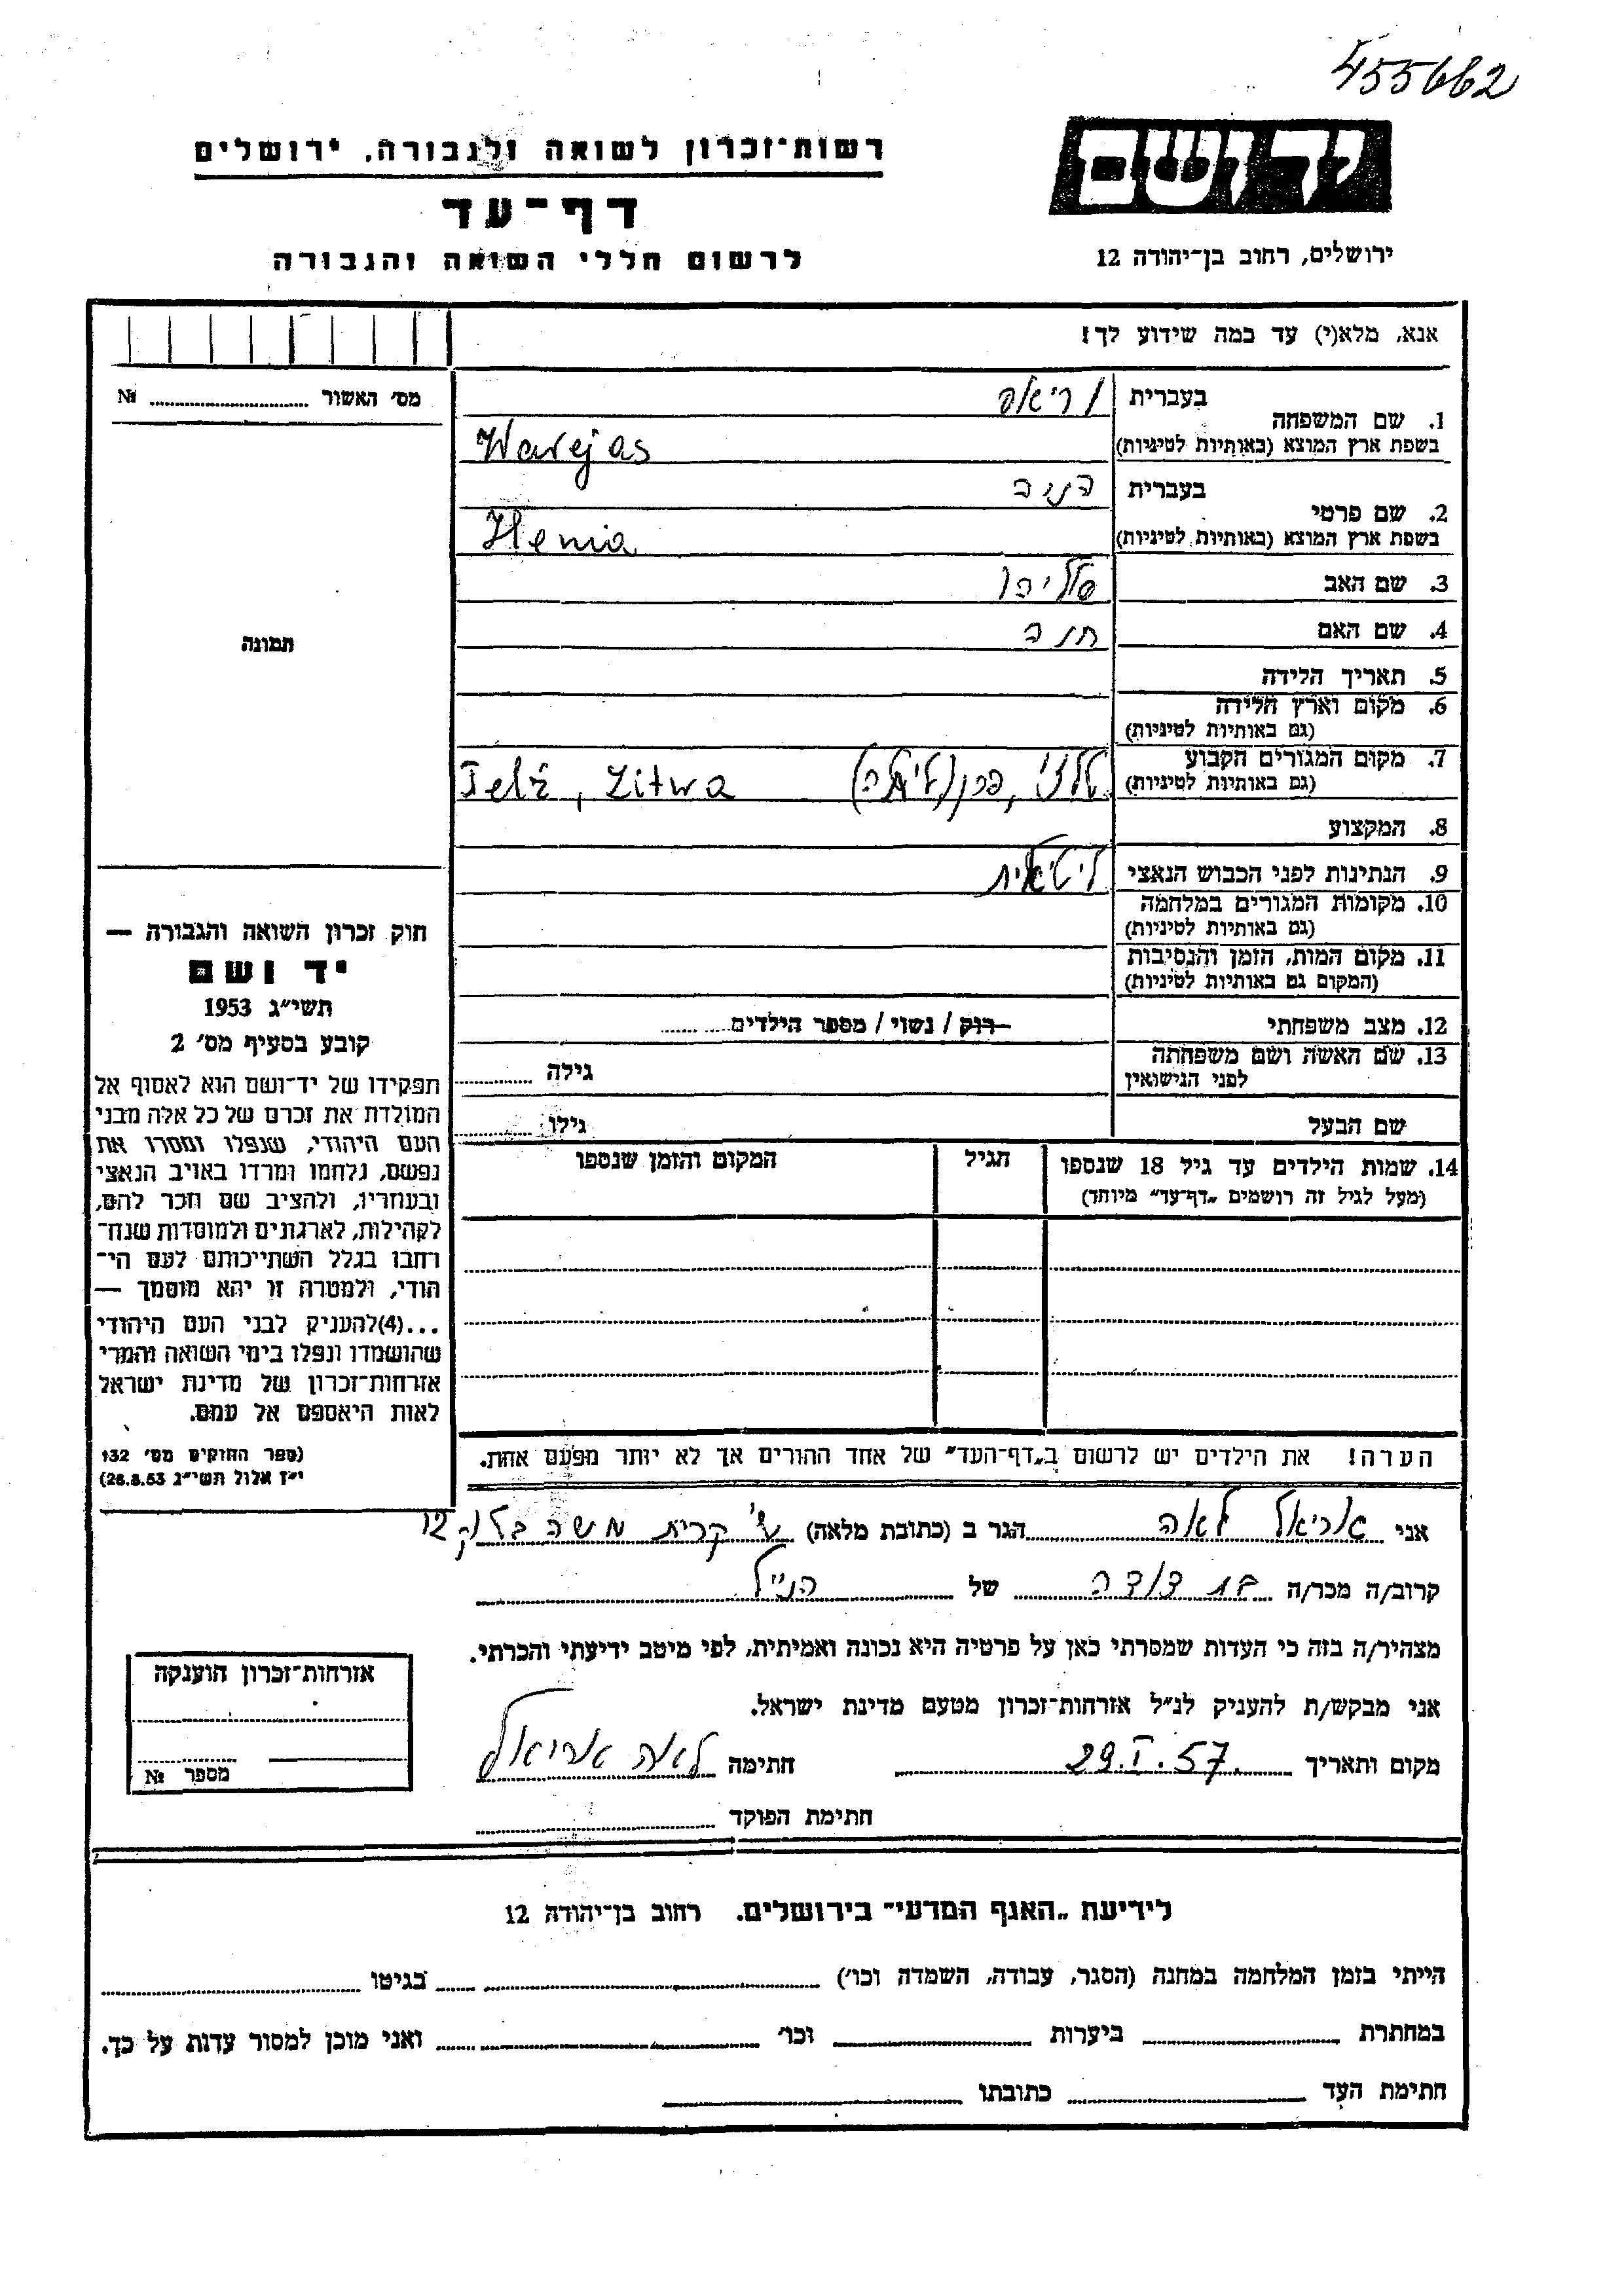 455662
יד ושם
רשות־זכרון לשואה ולגבורה, ירושלים
דף־עד
לרשום חללי השואה והגבורה
ירושלים, רחוב בן־יהודה 12
אנא, מלא(י) עד כמה שידוע לך!
מס׳ האשור № 
תמונה
1. שם המשפחה
בעברית וריאס
בשפת ארץ המוצא (באותיות לטיניות) Warejas
2. שם פרטי
בעברית הניה
בשפת ארץ המוצא (באותיות לטיניות) Henia
3. שם האב
4. שם האם חנה
5. תאריך הלידה
6. מקום וארץ הלידה
(גם באותיות לטיניות)
7. מקום המגורים הקבוע
(גם באותיות לטיניות) (ליטא) Telz, Litwa
8. המקצוע
9. הנתינות לפני הכבוש הנאצי ליטאית
10. מקומות המגורים במלחמה
(גם באותיות לטיניות)
11. מקום המות, הזמן והנסיבות
(המקום גם באותיות לטיניות)
12. מצב משפחתי רוק / נשוי / מספר הילדים
13. שם האשה ושם משפחתה
לפני הנישואין גילה
שם הבעל גילו
14. שמות הילדים עד גיל 18 שנספו הגיל המקום והזמן שנספו
(מעל לגיל זה רושמים „דף־עד״ מיוחד)
חוק זכרון השואה והגבורה —
יד ושם
תשי״ג 1953
קובע בסעיף מס׳ 2
תפקידו של יד־ושם הוא לאסוף אל
המולדת את זכרם של כל אלה מבני
העם היהודי, שנפלו ומסרו את
נפשם, נלחמו ומרדו באויב הנאצי
ובעוזריו, ולהציב שם וזכר להם,
לקהילות, לארגונים ולמוסדות שנח־
רחבו בגלל השתייכותם לעם הי־
הודי, ולמטרה זו יהא מוסמך —
...(4)להעניק לבני העם היהודי
שהושמדו ונפלו בימי השואה והמרי
אזרחות־זכרון של מדינת ישראל
לאות היאספם אל עמם.
(ספר החוקים מס׳ 132
י״ז אלול תשי״ג 28.8.53)
הערה! את הילדים יש לרשום ב„דף־העד״ של אחד ההורים אך לא יותר מפעם אחת.
אני אריאל לאה הגר ב (כתובת מלאה) קרית משה בלוק 12
קרוב/ה מכר/ה בת דודה של הנ״ל
מצהיר/ה בזה כי העדות שמסרתי כאן על פרטיה היא נכונה ואמיתית, לפי מיטב ידיעתי והכרתי.
אני מבקש/ת להעניק לנ״ל אזרחות־זכרון מטעם מדינת ישראל.
מקום ותאריך 29.I.57 חתימה לאה אריאל
חתימת הפוקד
אזרחות־זכרון הוענקה
מספר №
לידיעת „האגף המדעי״ בירושלים. רחוב בן־יהודה 12
הייתי בזמן המלחמה במחנה (הסגר, עבודה, השמדה וכו׳) בגיטו
במחתרת ביערות וכו׳ ואני מוכן למסור עדות על כך.
חתימת העד כתובתו